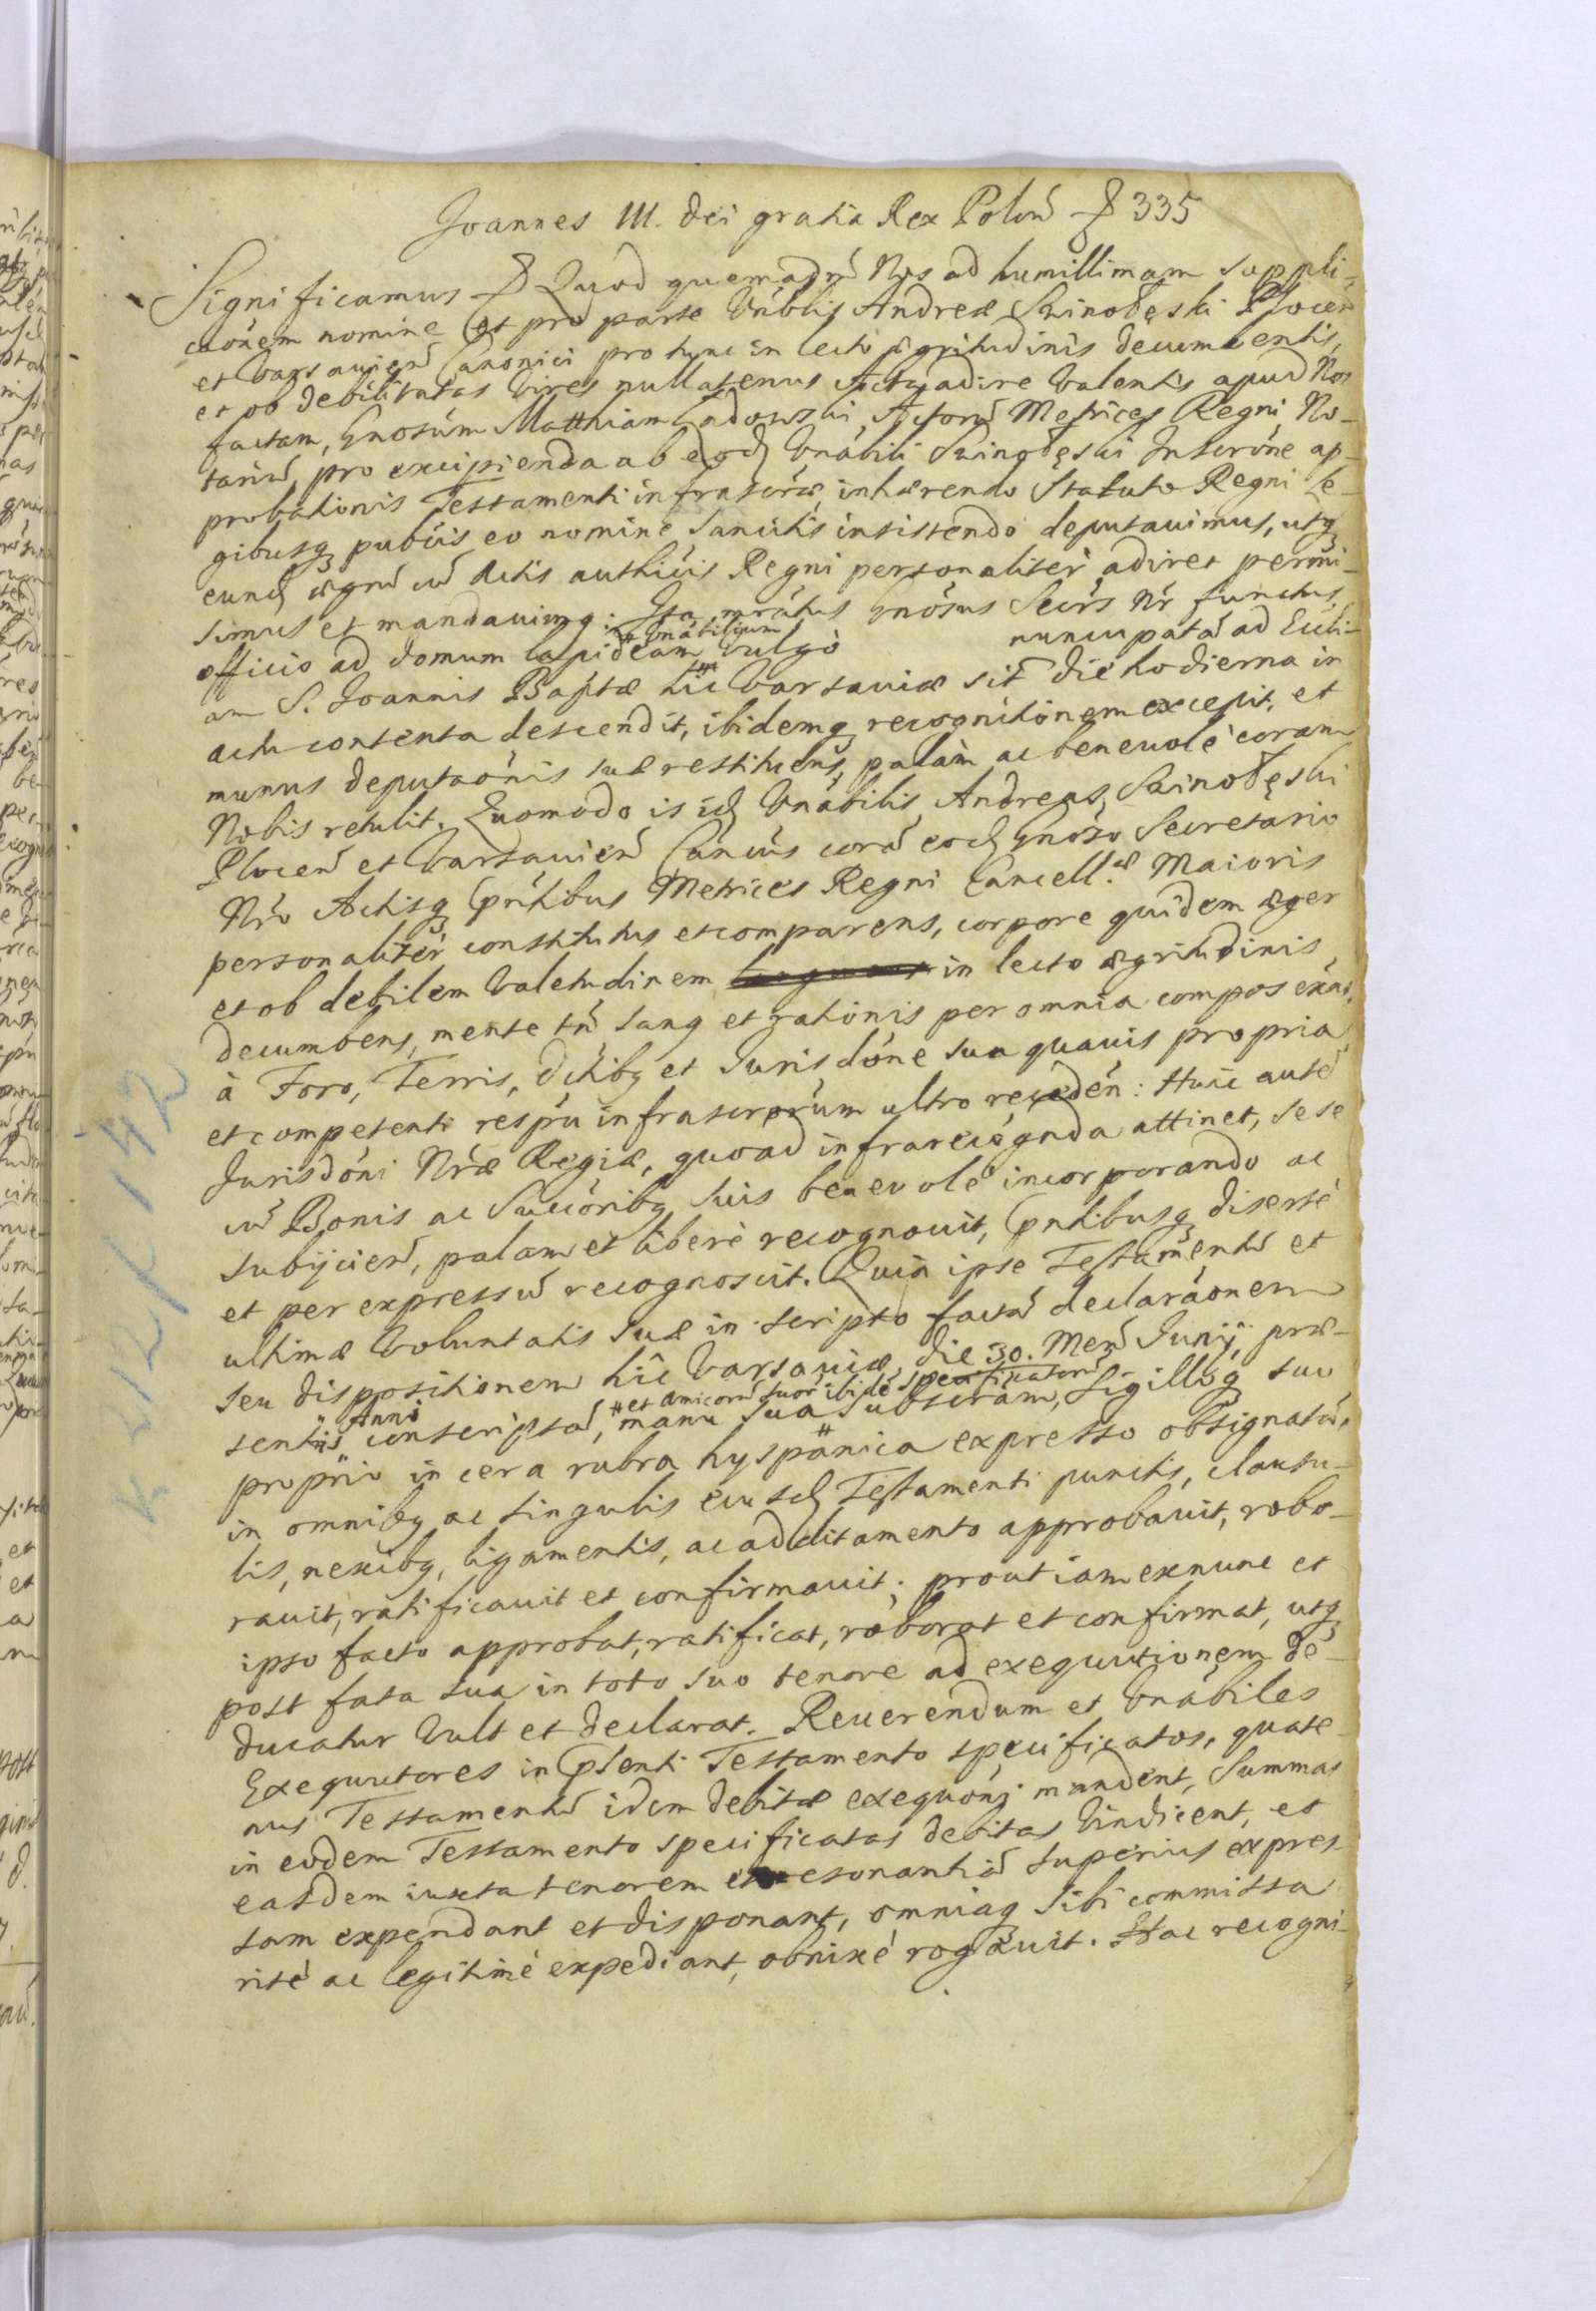 Joannes III. Dei gratia Rex Poloń 335
Significamus Quod quemadm̃ Nos ad humillimam suppli-
caōnem nomine et pro parte Vńblis Andreæ Swinołęski Plocen̄
et Varsavien̄ Canonici pro tunc in lecto ægritudinis decumbentis,
et ob debilitatas vires nullatenus Acta adire valentis apud Nos
factam, Gnosúm Matthiam Ladowski, Actorū Metrices Regni No-
tariū, pro excipienda ab eod Vnábili Swinołęski Inscrõne ap-
probationis Testamenti infrascrõ, inhærendo Statuto Regni Le-
gibusq publiis eo nomine sancitis insistendo deputavimus, utq
eund ægrū cū Actis authcis Regni personaliter adiret permi-
simus et mandavimq. Ita mrátus Gnósus Secrs Nr functus
officio ad domum lapideam # Vnábilium vulgò nuncupatá ad Eccli-
am S. Joannis Baptæ hic Varsaviæ sit̄ die hodierna in
actu contenta descendit, ibidemq recognitionem excepit, et
munus deputaónis suæ restituens, palàm ac benevolè coram
Nobis retulit. Quomodo is id Vnábilis Andreas Swinołęski
Plocen̄ et Varsavien̄ Cancus corā eod Gnóso Secretario
Nrõ Actisq Pntibus Metrices Regni Cancell.æ Maioris
personaliter constitutus et comparens, corpore quidem æger
et ob debilem valetudinem in lecto ægritudinis
decumbens, mente tn̄ sanq et rationis per omnia compos exns.
à Foro, Terris, Dctibq et Jurisdóne sua quavis propria
et competenti respu infrascrorum ultro recedén: Huic autē
Jurisdóni Nræ Regiæ, quoad infrarecógnda attinet, sese
cū Bonis ac Succóribq suis benevolè incorporando ac
subijcien̄, palam et liberè recognovit, Pntibusq disertè
et per expressū recognoscit. Quia ipse Testamentū et
ultimæ Voluntatis suæ in scripto factā declaráonem
seu dispositionem hîc Varsaviæ, die 30. Men̄ Junij, præ-
sentis Anni conscriptā, # et amicorū suor̄ ibidē specificatorū manu sua subscrám, Sigilloq suo
proprio in cera rubra hyspanica # expresso obsignatā,
in omnibq ac singulis eiusd Testamenti punctis, clausu-
lis, nexibq, ligamentis, ac additamento approbavit, robo-
ravit, ratificavit et confirmavit; prout iam exnunc et
ipso facto approbat, ratificat, roborat et confirmat, utq
post fata sua in toto suo tenore ad exequutionem de-
ducatur Vult et declarat. Reverendum et Vnábiles
Exequutores in Psenti Testamento specificatos, quate-
nus Testamentū idem debitæ exequóni mandent, Summas
in eodem Testamento specificatas debitas Vindicent, et
easdem iuxta tenorem et resonantiā superius expres-
sam expendant et disponant, omniaq sibi commissa
ritè ac legitimè expediant, obnixè rogavit. Hac recogni-